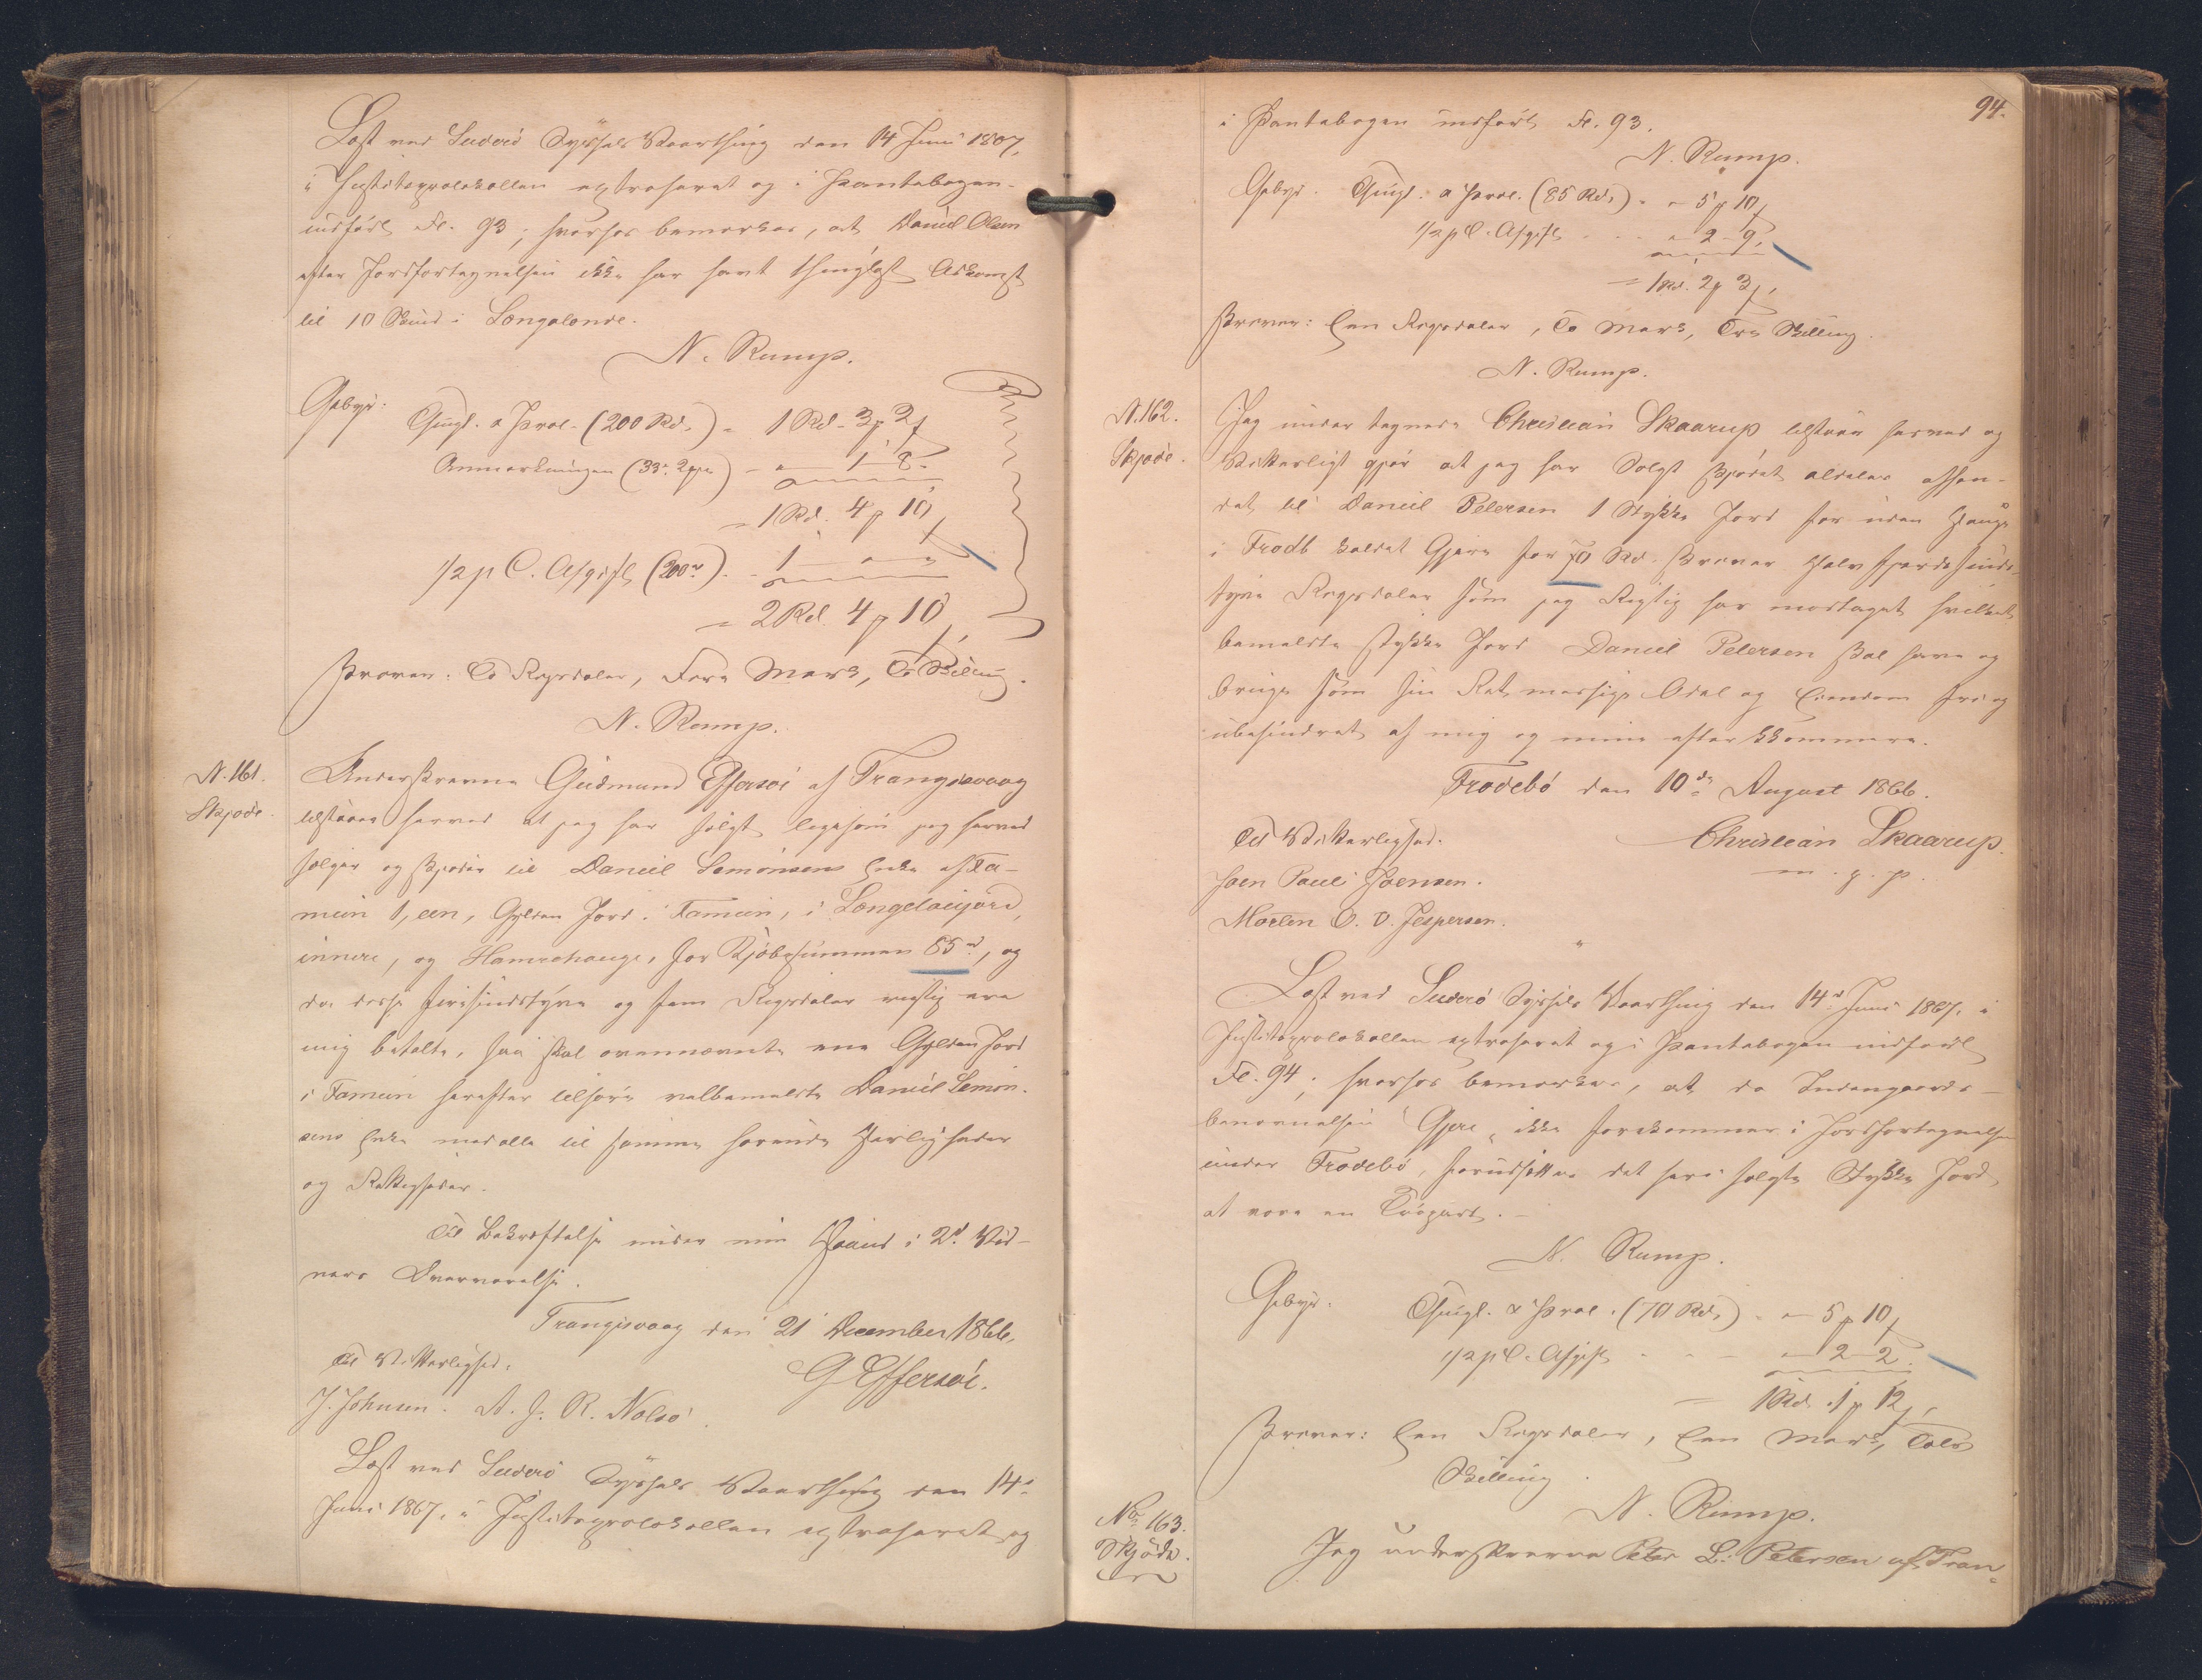 Læst ved Suderö Syssels Vaarthing den 14 Juni 1867,
i Justitsprotokollen extraheret og i Pantebogen
indført Fl. 93; hvorhos bemærkes, at Daniel Olsen
efter Jordfortegnelsen ikke har havt thinglæst Adkomst
til 10 Skind i Longalende.
N. Rump.
Gebyr.
Thingl. & Prot. (200 Rd.) = 1 Rd - 3 ꝑ 2 ꝭ
Anmærkningen (33. 2 ) - " 1 8 -
= 1 Rd. 4 ꝑ 10
1/2 p C. Afgift (200 rd) . 1 " "
= 2 Rd. 4 ꝑ 10
Skriver: To Rigsdaler, Fire Mark, Ti Skilling.
N. Rump.
N. 161.
Skjøde.
Underskrevne Gudmund Effersöe af Trangisvaag
tilstaaer herved at jeg har solgt, ligesom jeg herved
sælger og skjøder til Daniel Simonsens Enke af Fa-
mien 1, een, Gylden Jord i Famien, i Longelaeijord,
innere, og Hamrahauge, for Kjøbesummen 85 rd, og
da disse firesindstyve og fem Rigsdaler rigtig ere
mig betalte, saa skal ovennævnte ene Gylden Jord
i Famien herefter tilhøre velbemeldte Daniel Simon-
sens Enke med alle til samme hørende Herligheder
og Rettigheder.
Til Bekræftelse under min Haand i 2de Vid-
ners Overværelse.
Trangisvaag den 21 December 1866.
Til Vitterlighed.
G Effersöe.
J. Johnsen. A. J. R. Nolsö.
Læst ved Suderö Syssels Vaarthing den 14-
Juni 1867, i Justitsprotokollen extraheret og
94.
i Pantebogen indført Fl. 93.
N. Rump.
Gebyr. Thingl. & Prot. (85 Rd.) . " 5 ꝑ 10 ꝭ
1/2 p C. Afgift - - - " 2 - 9,
= 1 Rd. 2 ꝑ 3 ꝭ,
Skriver: Een Rigsdaler, To Mark, Tre Skilling.
N. Rump.
N. 162.
Skjøde.
Jeg undertegnede Christian Skaarup tilstaar herved og
Vitterligt gjør at jeg har Solgt skjødet aldeles afhæn-
det til Daniel Petersen 1 Stykke Jord for uden Hauge
i Frodb kaldet Gjere for 70 Rd. Skriver Halvfjerdesinds-
tyve Rigsdaler som jeg Rigtig har modtaget hvilket
bemeldte stykke Jord Daniel Petersen skal have og
bruge som sin Ret mæssige Odel og Eiendom fri og
ubehindret af mig og mine efter kkommere.
Frodebö den 10de August 1866.
Til Vitterlighed.
Christian Skaarup.
m. g. p.
Joen Pauli Joensen.
Morten O. D. Jespersen.
Læst ved Suderö Syssels Vaarthing den 14de Juni 1867, i
Justitsprotokollen extraheret og i Pantebogen indført
Fl. 94; hvorhos bemærkes, at da Indengaards-
benævnelsen "Gjere" ikke forekommer i Jordfortegnelsen
under Frodebö, forudsættes det heri solgte Stykke Jord
at være en Trøpart. -
N. Rump.
Gebyr.
Thingl. & Prot. (70 Rd.) . " 5 ꝑ 10 ꝭ
1/2 p C. Afgift - - - " 2 - 2.
= 1 Rd. 1 ꝑ 12 ꝭ,
Skriver: Een Rigsdaler, Een Mark, Tolv
Skilling.
N. Rump.
No 163.
Skjöde.
Jeg underskrevne Peter L. Petersen af Tran-